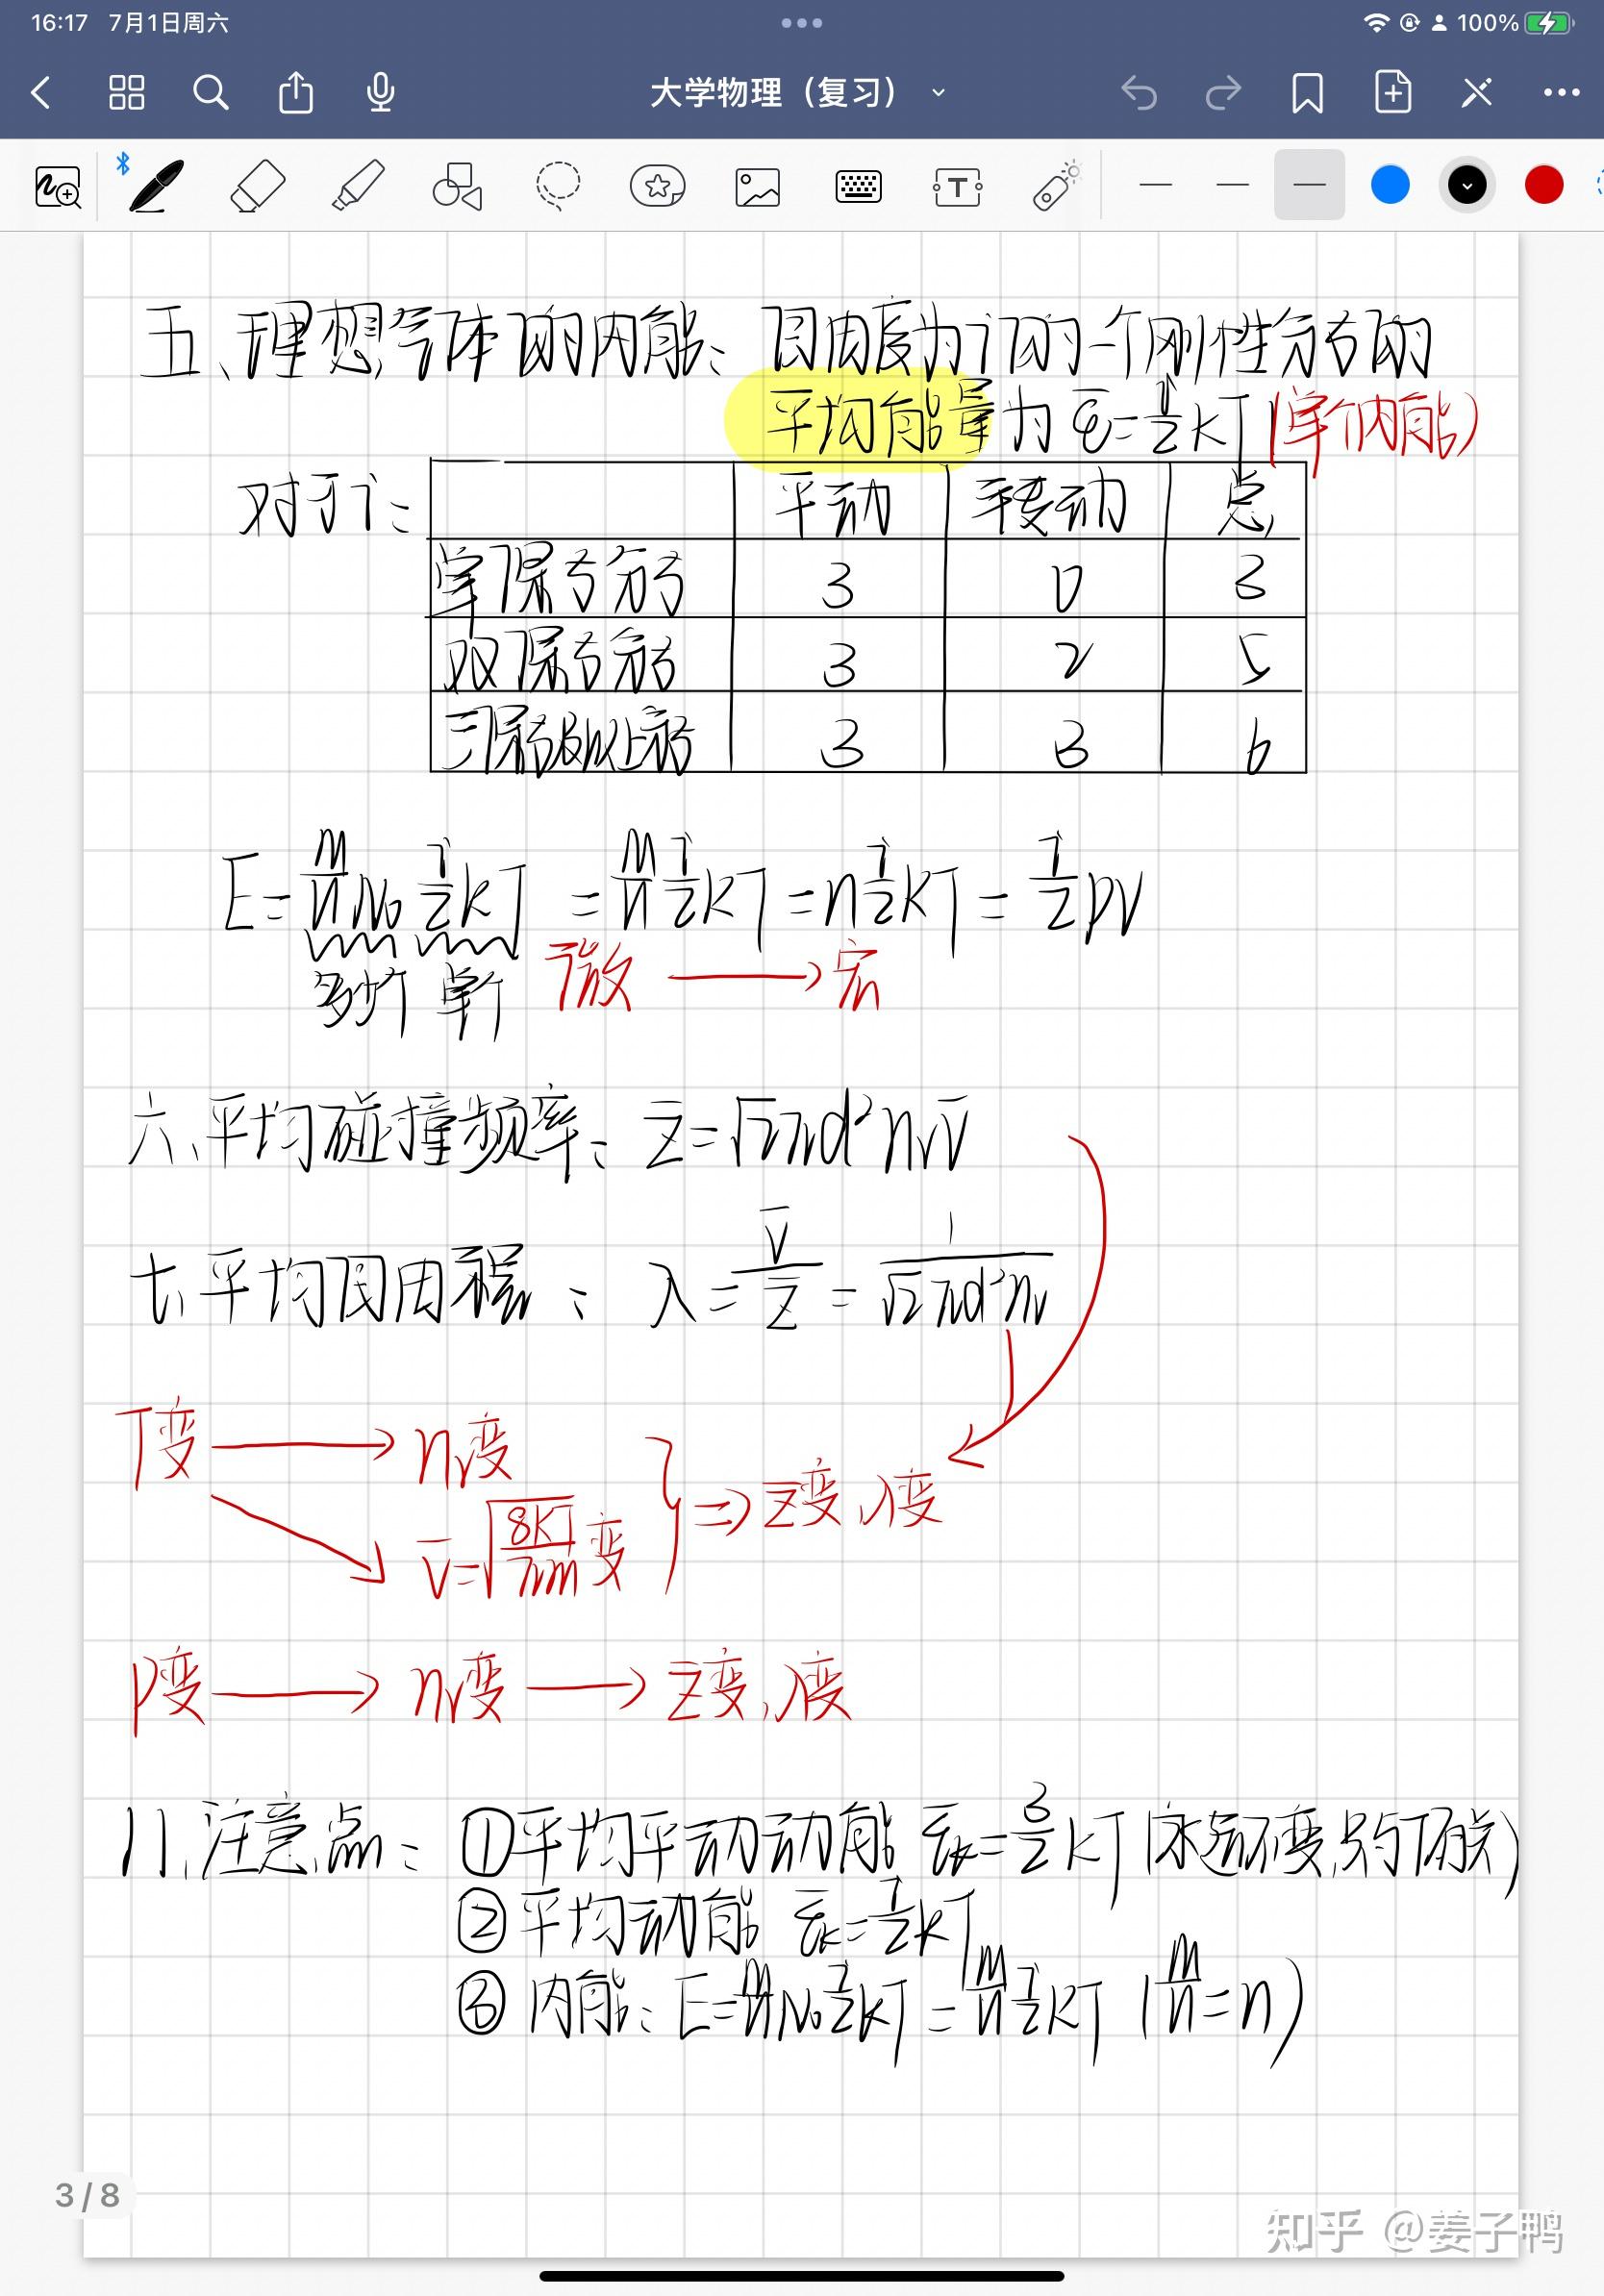 16:17 7月1日周六
100%
大学物理（复习）
五、理想气体的内能：自由度为i的一个刚性分子的
平均能量为 ε̄=i/2 kT (单个内能)
对于i：
平动 转动 总
单原子分子 3 0 3
双原子分子 3 2 5
三原子及以上分子 3 3 6
E=m/M N₀ i/2 kT = m/M i/2 RT = n i/2 RT = i/2 pV
多少个 单个 微→宏
六、平均碰撞频率：z̄=√2πd²nᵥv̄
七、平均自由程：λ=v̄/z̄=1/(√2πd²nᵥ)
T变→nᵥ变
v̄=√(8kT/πm)变
⇒z̄变、λ变
p变→nᵥ变→z̄变、λ变
八、注意点：①平均平动动能 ε̄k=3/2 kT (永远不变,只与T有关)
②平均动能 ε̄k=i/2 kT
③内能：E=m/M N₀ i/2 kT = m/M i/2 RT (m/M=n)
3/8
知乎 @姜子鸭